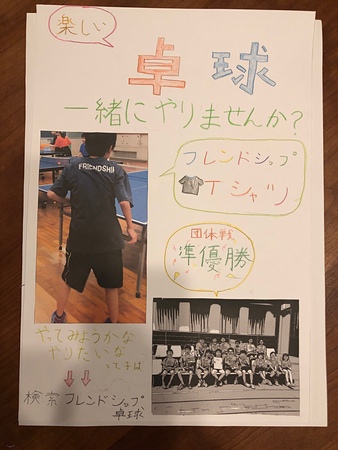 楽しい
卓球
一緒にやりませんか?
FRIENDSHIP
フレンドシップ
Tシャツ
団体戦
準優勝
やってみようかな
やりたいな
って子は
↓↓
検索フレンドシップ
卓球